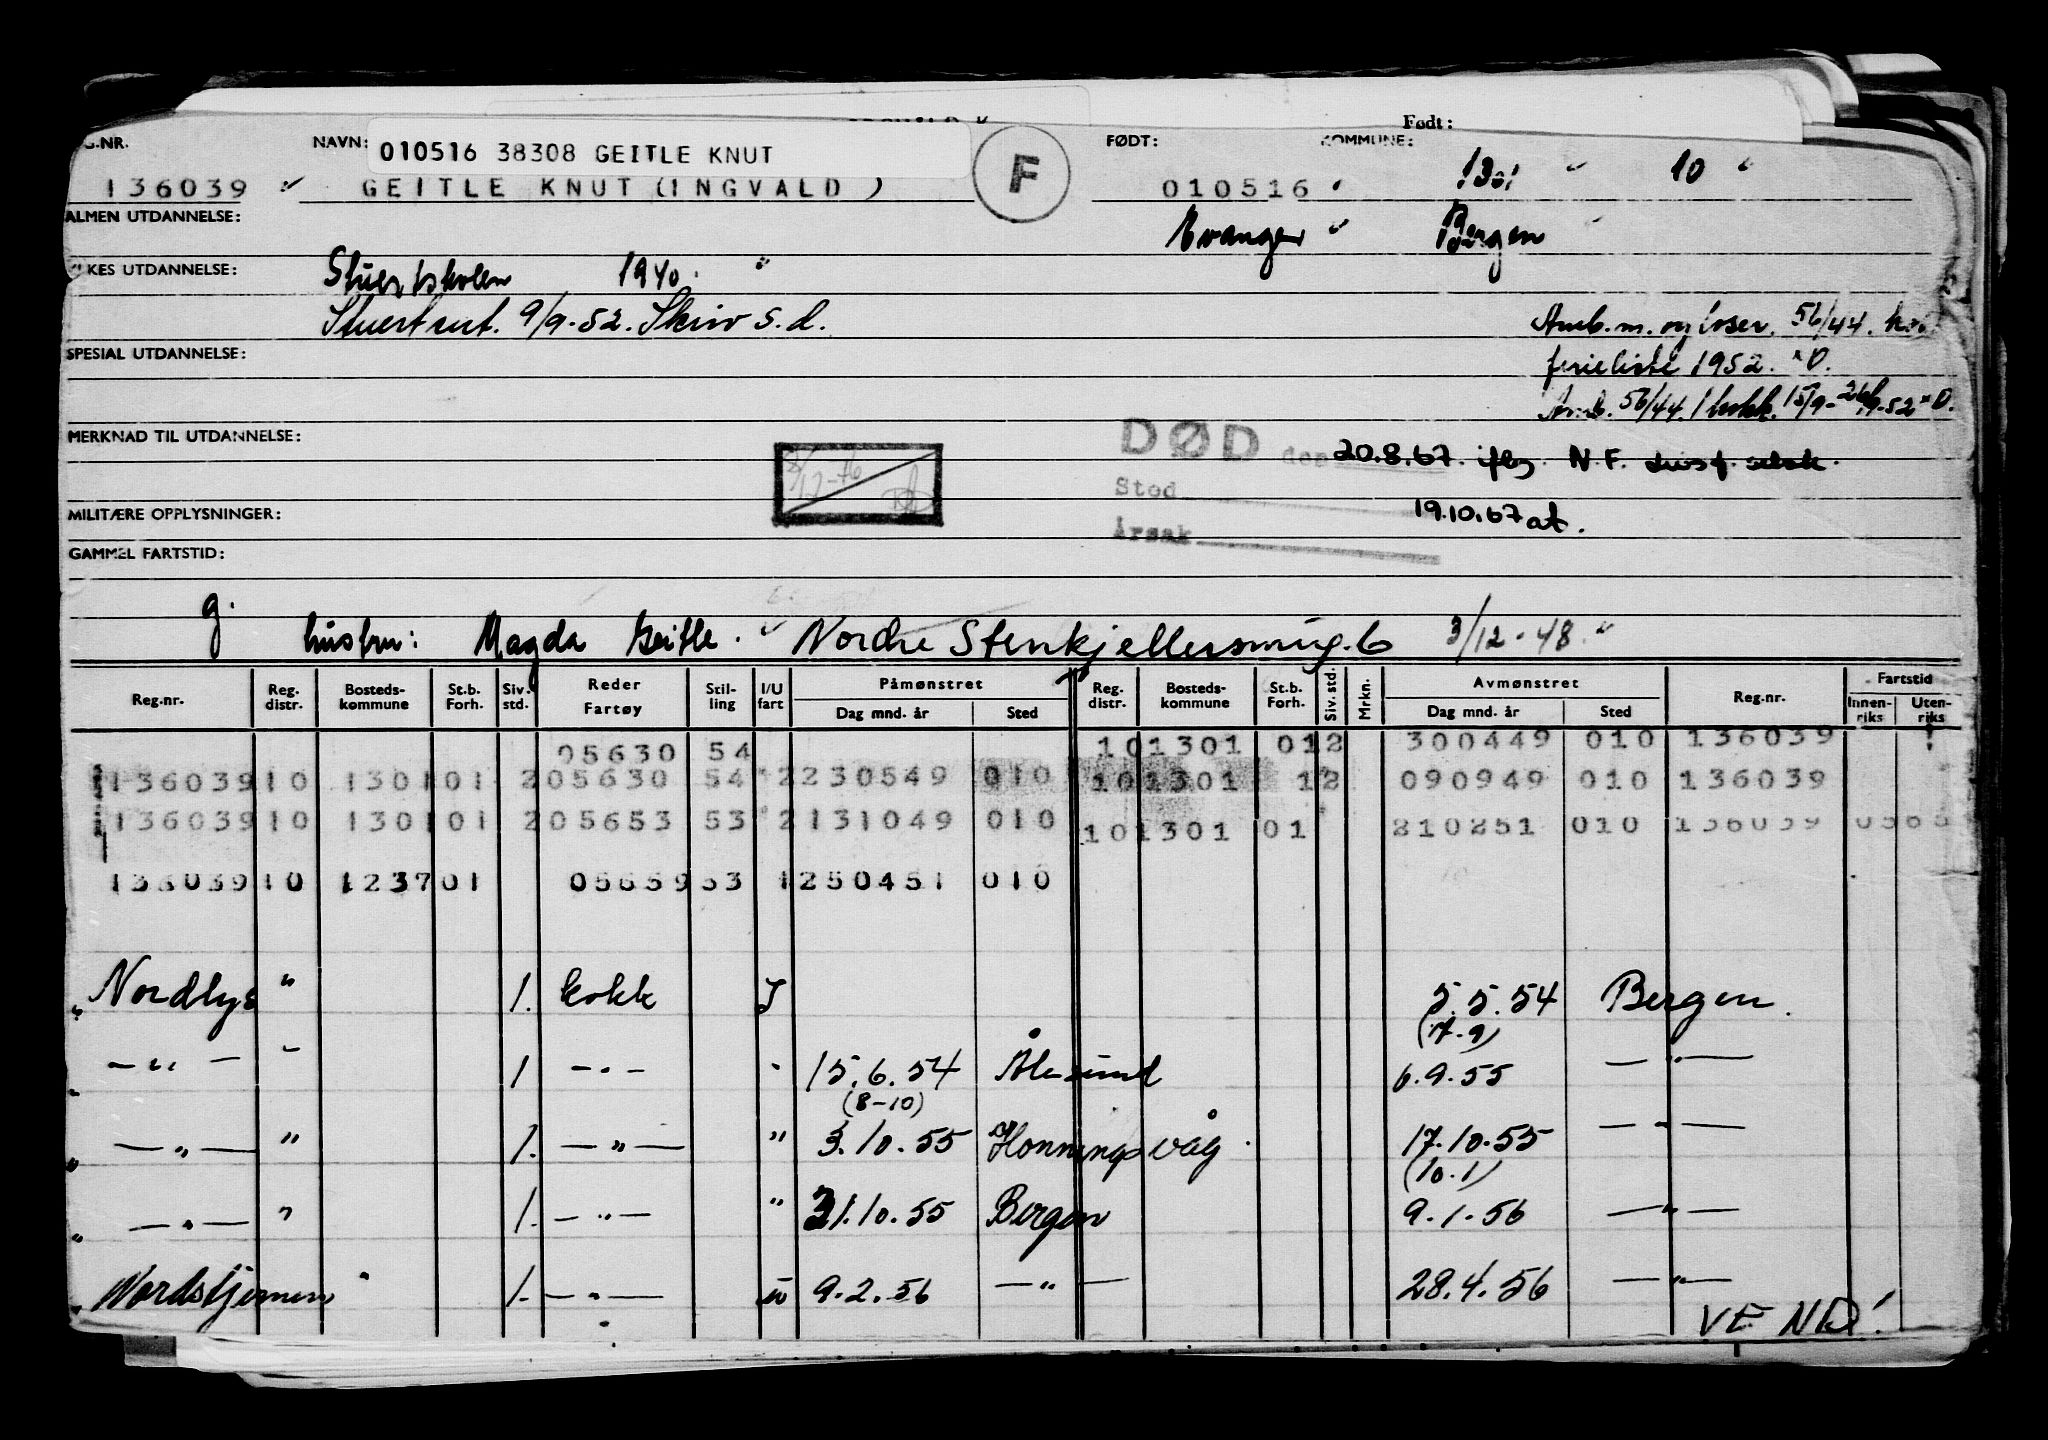 Født:
G.NR. NAVN: 010516 38308 GEITLE KNUT F FØDT: KOMMUNE:
136039 GEITLE KNUT (INGVALD) 010516 1301 10
ALMEN UTDANNELSE: Evanger Bergen
YRKES UTDANNELSE: Stuertskolen 1940.
Stuert sert. 9/9-52. Skriv s.d.
Amb. m. og loser. 56/44.
SPESIAL UTDANNELSE: ferieliste 1952. D.
Amb. 56/44. 1 kokk. 15/9-
MERKNAD TIL UTDANNELSE: DØD den 20.8.67. iflg. N.F.
8/12-76
Sted
MILITÆRE OPPLYSNINGER: 19.10.67 at.
Årsak
GAMMEL FARTSTID:
g.
hustru: Magda Geitle. Nordre Stenkjellersmug. 6 3/12-48
Reg.nr. Reg. distr. Bosteds- kommune St.b. Forh. Siv. std. Reder Fartøy Stil- ling I/U fart Påmønstret Dag mnd. år Sted Reg. distr. Bosteds- kommune St.b. Forh. Siv. std. Mrkn. Avmønstret Dag mnd. år Sted Reg.nr. Fartstid Innen- riks Uten- riks
05630 54 101301 012 300449 010 136039
136039 10 1301 01 2 05630 54 2 230549 010 101301 12 090949 010 136039
136039 10 1301 01 2 05653 53 2 131049 010 101301 01 210251 010 136039
136039 10 1237 01 05659 53 1 250451 010
Nordlys " 1. kokk I 5.5.54 Bergen.
(17-9)
— " — " 1 — " — " 15.6.54 Ålesund 6.9.55 — " —
(8-10)
— " — " 1. — " — " 3.10.55 Honningsvåg. 17.10.55 — " —
(10.1)
— " — " 1. — " — " 31.10.55 Bergen 9.1.56 — " —
Nordstjernen " 1. — " — u 9.2.56 — " — 28.4.56 — " —
VEND!